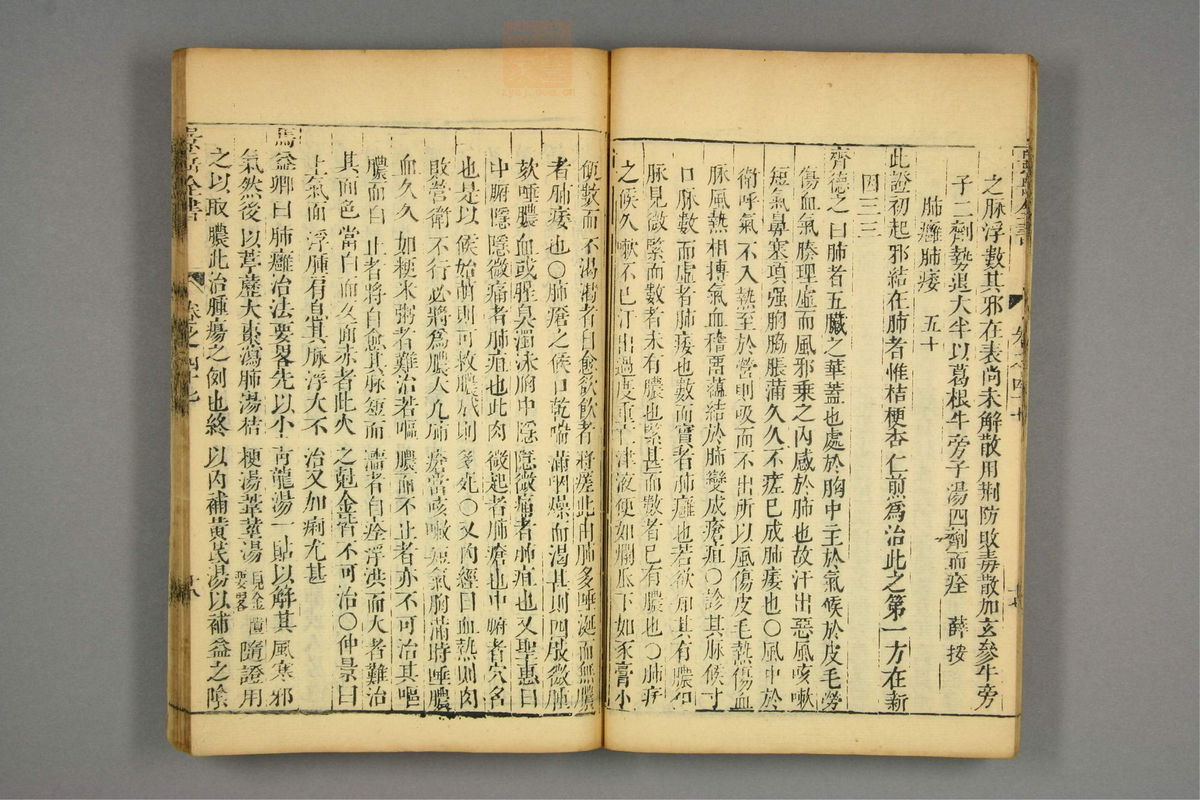 之脉浮數其邪在表尚未解散用荆防敗毒散加玄參牛旁
子二劑勢退大半以葛根牛旁子湯四劑而痊 薛按
肺癰肺痿 五十
此證初起邪結在肺者惟桔梗杏仁煎爲治此之第一方在新
因三三
齊德之曰肺者五臟之華蓋也處於胸中主於氣候於皮毛勞
傷血氣腠理虛而風邪乘之内感於肺也故汗出惡風咳嗽
短氣鼻塞項强胸脇脹滿久久不瘥已成肺痿也○風中於
衛呼氣不入熱至於營則吸而不出所以風傷皮毛熱傷血
脉風熱相摶氣血稽留蘊結於肺變成瘡疽○診其脉候寸
口脉數而虛者肺痿也數而實者肺癰也若欲知其有膿但
脉見微緊而數者未有膿也緊甚而數者已有膿也○肺痿
之候久嗽不已汗出過度重亡津液便如爛瓜下如豕膏小
便數而不渴渴者自愈欲飲者將瘥此由肺多唾涎而無膿
者肺痿也○肺瘡之候口乾喘滿咽燥而渴甚則四肢微腫
欬唾膿血或腥臭濁沫胸中隱隱微痛者肺疽也又聖惠曰
中腑隱隱微痛者肺疽也此肉微起者肺瘡也中腑者穴名
也是以候始萌則可救膿成則多死○又内經曰血熱則肉
敗營衛不行必將爲膿大凡肺瘡當咳嗽短氣胸滿時唾膿
血久久如粳米粥者難治若嘔膿而不止者亦不可治其嘔
膿而自止者將自愈其脉短而濇者自痊浮洪而大者難治
其面色當白而久面赤者此火之尅金皆不可治○仲景曰
上氣面浮腫肩息其脉浮大不治又加痢尤甚
馬益卿曰肺癰治法要畧先以小青龍湯一貼以解其風寒邪
氣然後以葶藶大棗瀉肺湯桔梗湯葦莖湯 見金匱要畧 隨證用
之以取膿此治腫瘍之例也終以内補黃芪湯以補益之陰
景岳全書
卷之四十七